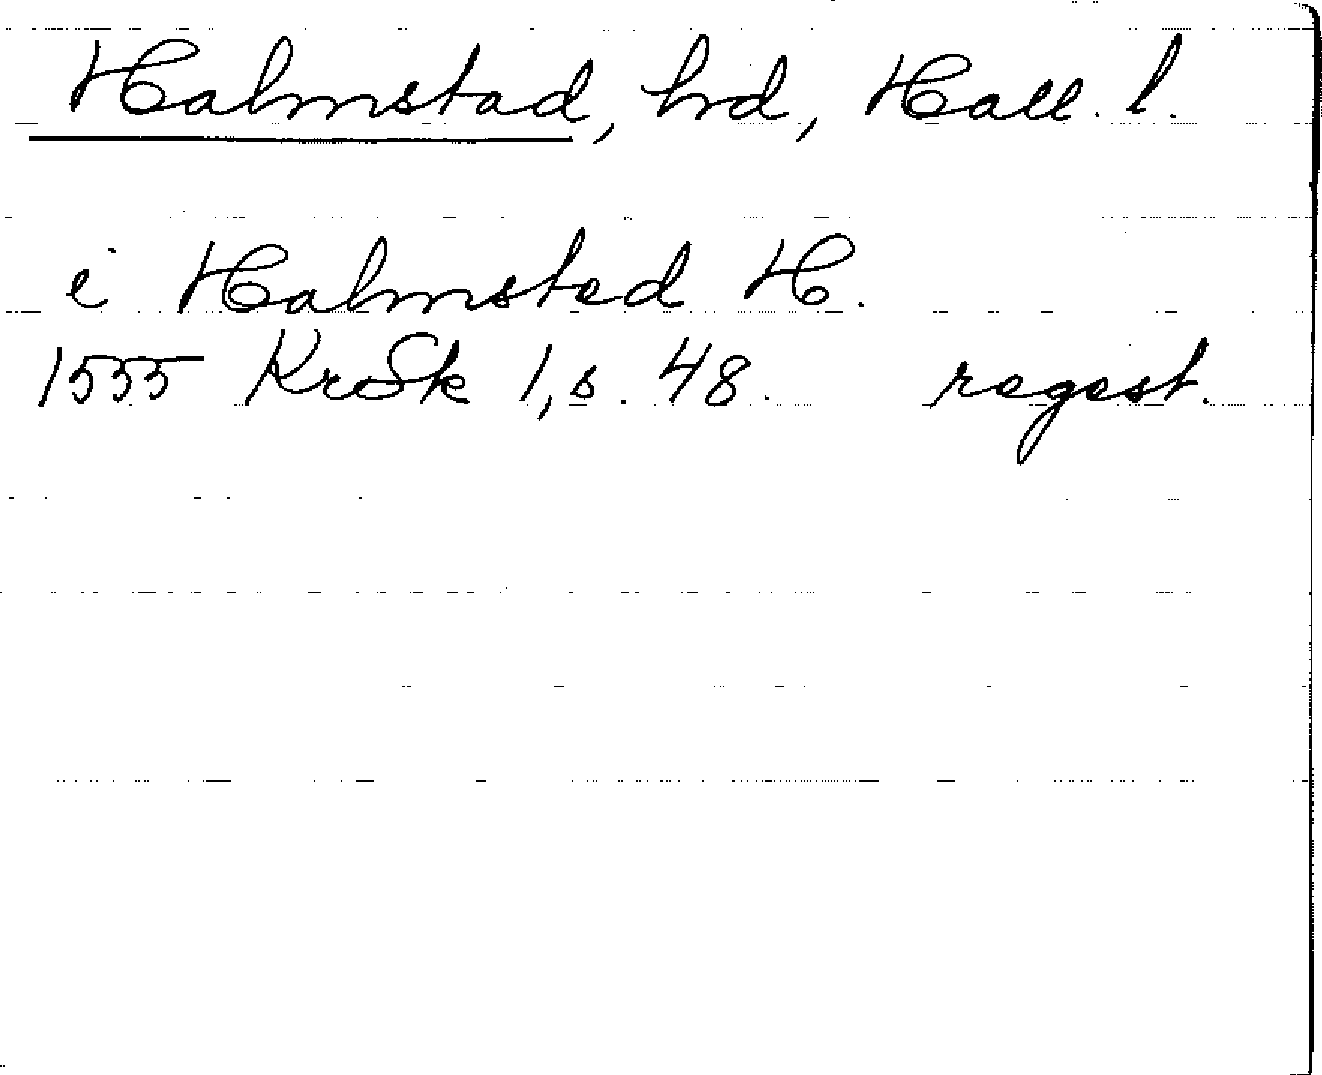 Halmstad, hrd, Hall. l.
i Halmsted H.
1555 KroSk 1, s. 48. regest.